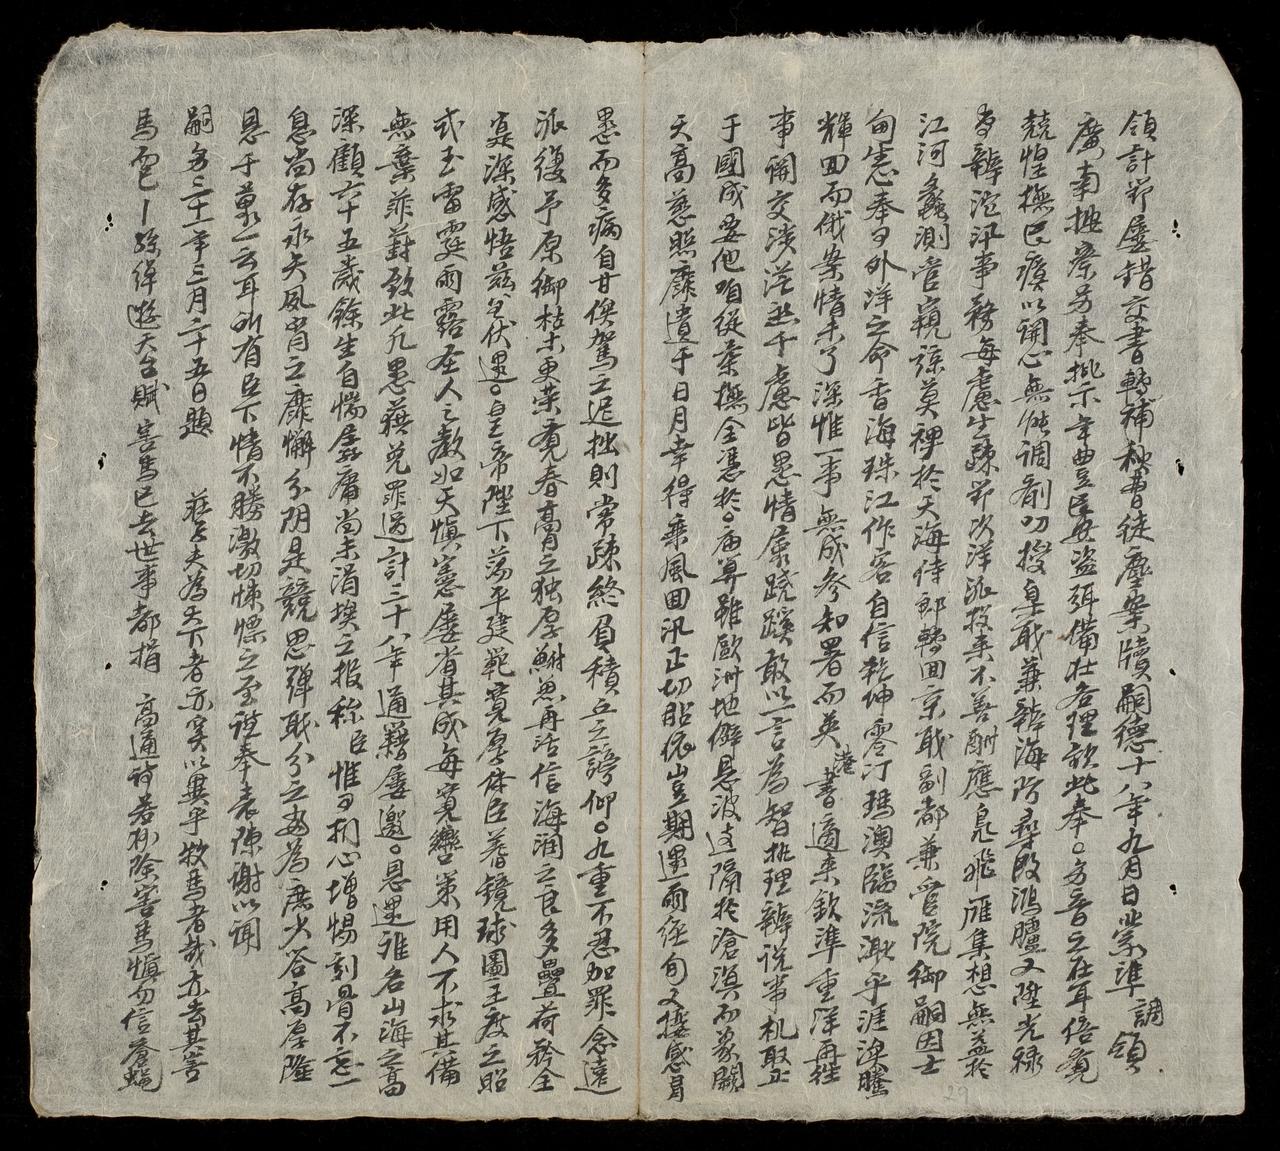 領計節屡錯交書轉補秘書徒塵案牘嗣德十八年九月日崇準調領
廣南按察另奉批示年豐民安盗弭備壯各理欽此奉○另音之在耳倍覺
兢惶撫民瘼以開心無能調劑叨授臬職兼辨海防尋改鴻臚又陞光禄
力辨洋汛事務每慮生踈節次洋派投來不善酬應鳬飛雁集想無益於
江河蠡測管窺諒莫裨於天海侍郎轉回京職副都兼管院御嗣因士
甸恙奉○外洋之命香海珠江作客自信乾坤零汀瑪澳臨流漱乎涯涘騰
輝回而俄案情未了深惟一事無成參知署而英港書適來欽準重洋再往
事關交涉茫然千慮皆愚情屬蹺蹊敢以一言為智執理辨説常机取正
于國成要他咱從蔡撫全憑於○庙算雖歐洲地僻悬波遠隔於滄溟而象闕
天高慈照靡遺于日月幸得乘風回汛正切貼依豈期遇雨經旬又攖感冒
愚而多病自甘倶駕之迟拙則常踈終負積丘之謗仰○九重不忍加罪念遠
派復予原御枯木更榮覺春膏之独厚鮒魚再活信海润之良多疊荷矜全
寔深感悟兹者伏遇○皇帝陛下蕩平建範寬厚体臣蓍鏡球圖王度之昭
式玉雷霆雨露圣人之教如天慎憲屡省其成每寬轡策用人不求其備
無棄菲葑致此凡愚藉兑罪過計二十八年通籍屡邀○恩遇雅名山海之高
深顧六十五歲餘生自惴孱庸尚未涓埃之报称臣惟有捫心增惕刻骨不忘一
息尚存永矢夙宵之靡懈分阴是競思殚职分之當為庶少答高厚隆
恩于萬一云耳所有臣下情不勝激切悚慄之至謹奉表陳謝以闻
嗣德三十一年三月二十五日題 莊子夫為天下者亦奚以異乎牧馬者哉亦去其害
馬而已丨孫綽遊天台賦 害馬已去世事都捐 高適詩若秒除害馬慎勿信蒼蝇